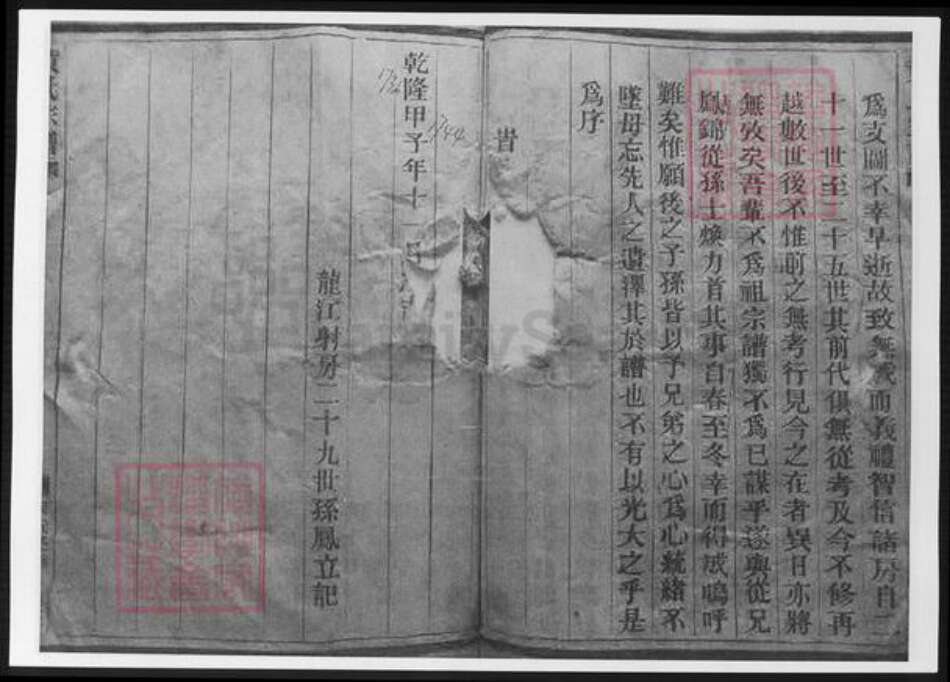 爲支圖不幸早逝故致無成而義禮智信諸房自二
十一世至二十五世其前代俱無從考及今不修再
越數世後不惟前之無考行見今之在者異日亦將
無攷矣吾輩不爲祖宗譜獨不爲已謀乎遂與從兄
鳳錦從孫士煥力首其事自春至冬幸而得成嗚呼
難矣惟願後之子孫皆以予兄弟之心爲心統緒不
墜毋忘先人之遺澤其於譜也不有以光大之乎是
爲序
旹
乾隆甲子年十一月
1744
龍江射房二十九世孫鳳立記